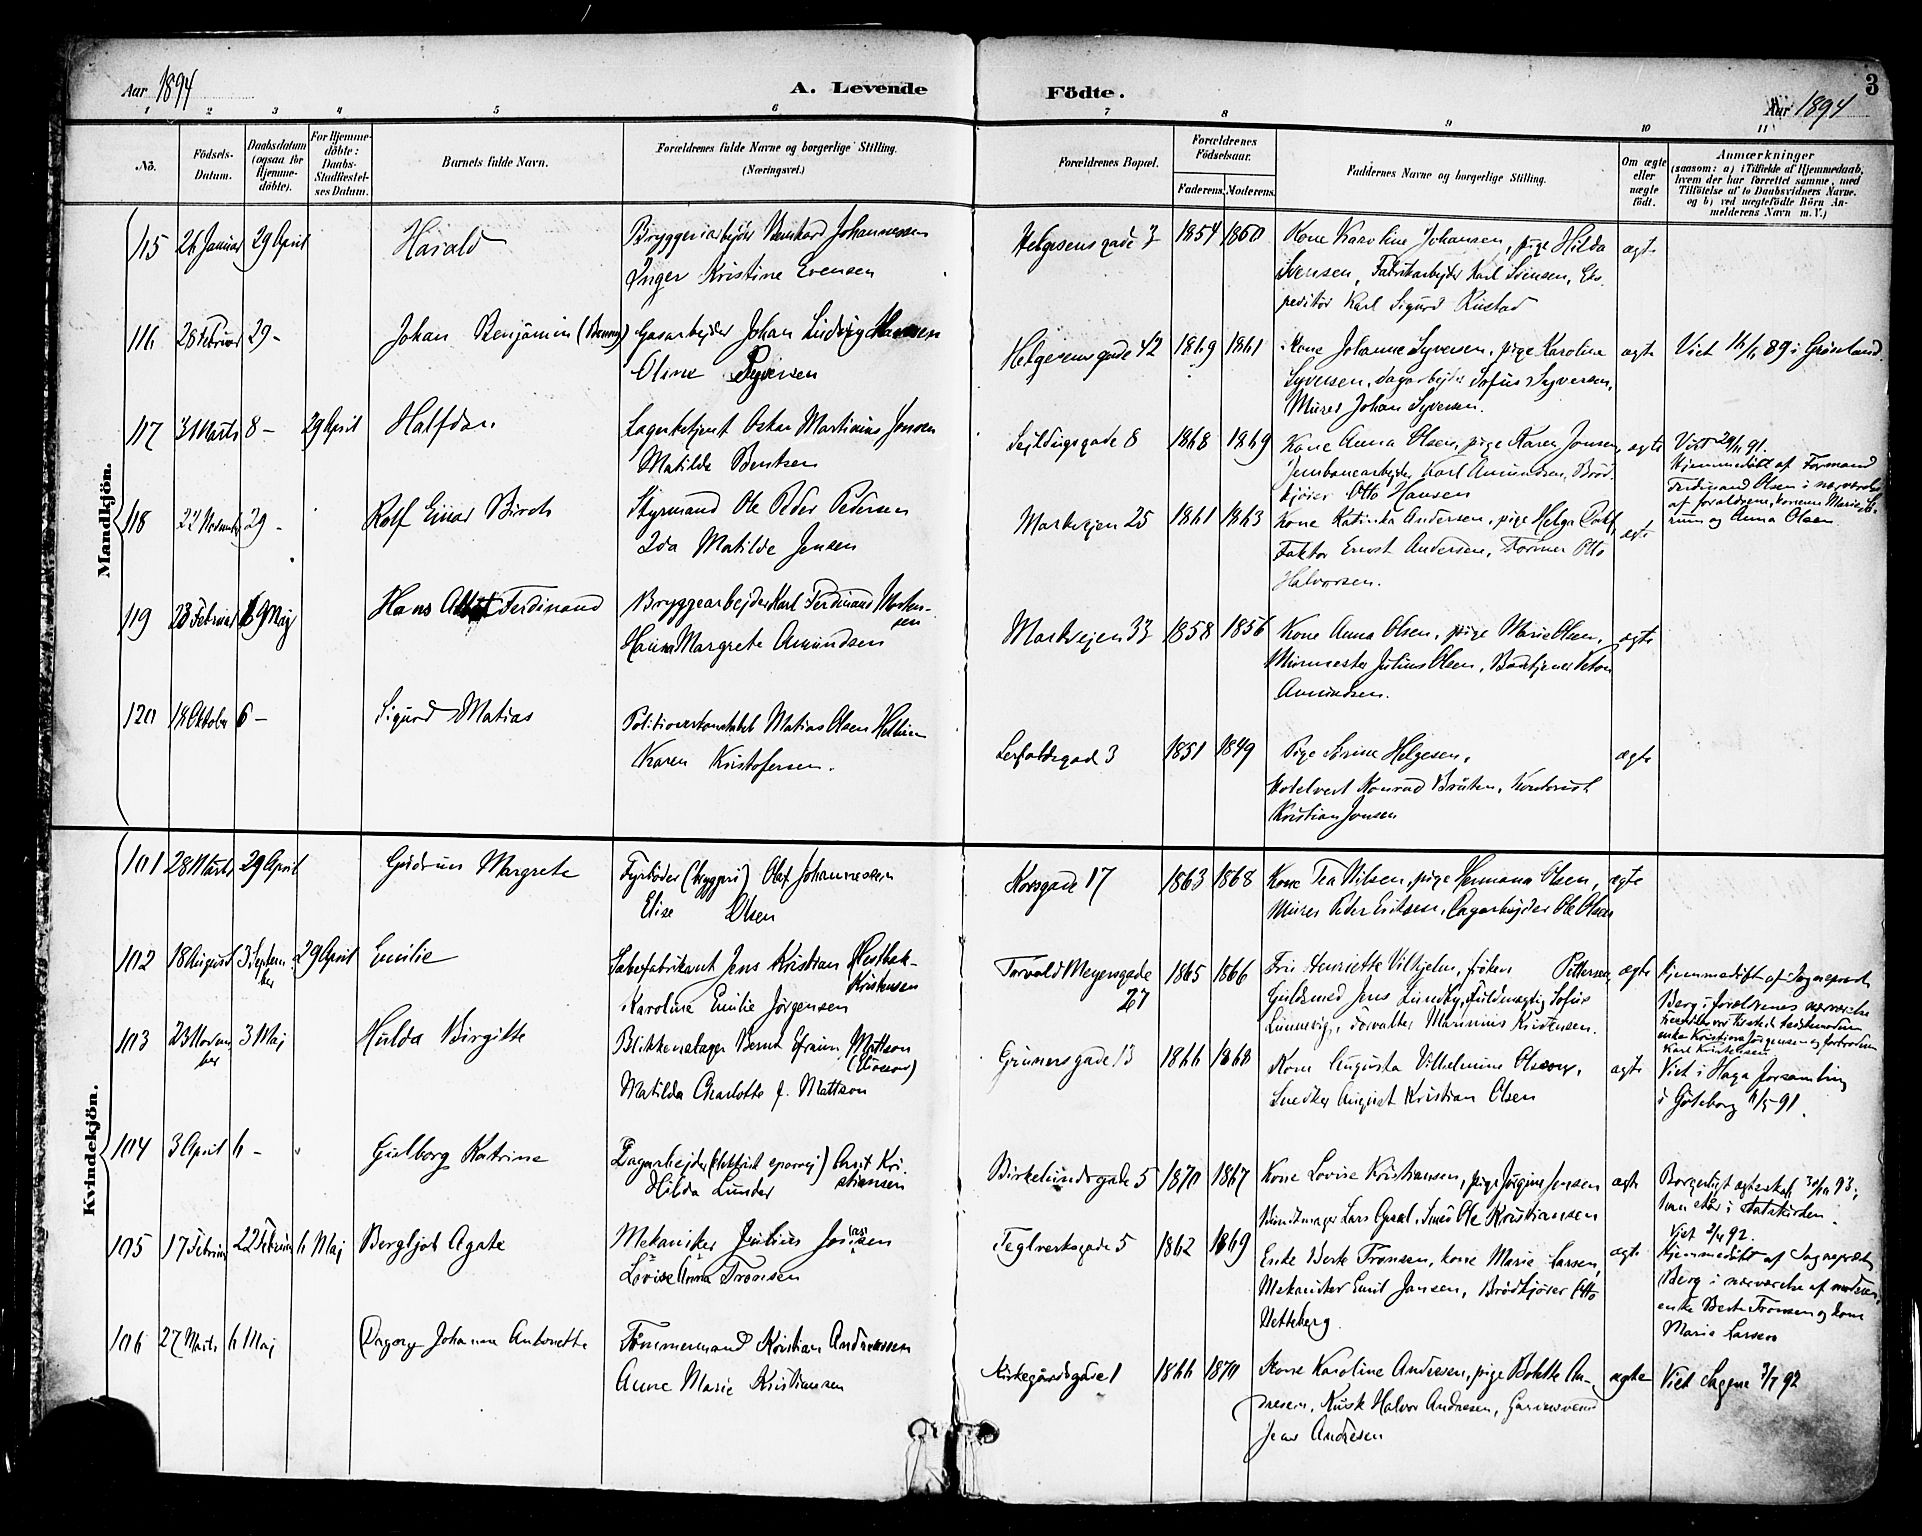 Aar 1894
A. Levende Födte.
Aar 1894
3
1 2 3 4 5 6 7 8 9 10 11
No.
Födsels-Datum.
Daabsdatum (ogsaa for Hjemme-döbte).
For Hjemme-döbte: Daabs-Stadfæstel-ses Datum.
Barnets fulde Navn.
Forældrenes fulde Navne og borgerlige Stilling. (Næringsvei.)
Forældrenes Bopæl.
Forældrenes Födselsaar.
Faderens. Moderens.
Faddernes Navne og borgerlige Stilling.
Om ægte eller uægte födt.
Anmærkninger
(saasom: a) i Tilfælde af Hjemmedaab,
hvem der har forrettet samme, med
Tilföielse af to Daabsvidners Navne.
og b) ved uægtefödte Börn An-
melderens Navn m. V.)
Mandkjön.
115 26 Januar 29 April Harald
Bryggeriarbejder Johannessen
Inger Kristine Evensen
Helgesensgade 3 1854 1860
Kone Karoline Johansen, pige Hilda
Svensen, Fabrikarbejder Karl Svensen, Eks-
peditör Karl Sigurd Rustad
ægte
116 28 Februar 29 - Johan Benjamin
Gasarbejder Johan Ludvig Hansen
Oline Syversen
Helgesensgade 42 1869 1861
Kone Johanne Syversen, pige Karolina
Syversen, Dagarbejder Sofus Syversen,
Murer Johan Syversen.
ægte
Viet 89 i Grönland.
117 31 Marts 8 - 29 April Halfdan
Oskar Martinius Jensen
Matilde Berntsen
Seildugsgade 8 1868 1869
Kone Anna Olsen, pige Karen Jonsen,
Jernbanearbejder Karl Amundsen, Bröd-
kjörer Otto Hansen
ægte
Viet 91.
Hjemmedöbt af Formand
Ferdinand Olsen i nærværelse
af forældrene, konerne Marie
og Anna Olsen.
118 22 November 29 - Rolf Einar Birch
Styrmand Ole Peder Pedersen
Ida Matilde Jensen
Markvejen 25 1861 1863
Kone Katinka Andersen, pige Helga
Faktor Ernst Andersen, Former Otto
Halvorsen.
ægte
119 23 Februar 6 Maj Hans Ferdinand
Bryggearbejder Karl Ferdinand Morten-
sen
Hanna Margrete Amundsen
Markvejen 33 1858 1856
Kone Anna Olsen, pige Marie Olsen,
Murmester Julius Olsen,
Amundsen.
ægte
120 18 Oktober 6 - Sigurd Matias
Politioverkonstabel Matias Olsen
Karen Kristofersen.
3 1851 1849
Pige Helgesen,
Hotelvert Konrad Kontorist
Kristian Jonsen
ægte
Kvindekjön.
101 28 Marts 29 April Gudrun Margrete
Fyrböder (bryggeri) Olaf Johannessen
Elise Olsen
Korsgade 17 1863 1868
Kone Tea Nilsen, pige Hermana Olsen,
Murer Peder Eriksen, Dagarbejder Ole Olsen
ægte
102 18 August 3 September 29 April Emilie
Sæbefabrikant Jens Kristian
Kristensen
Karoline Emilie Jörgensen
Torvald Meyersgade
27
1865 1866
Fru Henriette Vilhjelm, fröken Pettersen,
Guldsmed Jens Lundby, Fuldmægtig Sofus
Linnevig, Forvalter Marinius Kristensen.
ægte
Hjemmedöbt af Sogneprest
Berg i forældrenes nærværelse
enke Kristiane Jörgensen og
Karl Kristensen
103 23 Novem-ber 3 Maj Hulda Birgitte
Blikkenslager Bernt Efraim Mattson
Matilda Charlotte f. Mattson
Grünersgade 13 1866 1868
Kone Augusta Vilhelmine Olsson,
Snedker August Kristian Olsen
ægte
Viet i Haga forsamling
i Göteborg 91.
104 3 April 6 - Gulborg Katrine
Dagarbejder Arnt Kri-
stiansen
Hilda Lunder
Birkelundsgade 5 1870 1867
Kone Lovise Kristiansen, pige Jörgine Jensen
Lars Smed Ole Kristiansen
ægte
Borgerligt ægteskab 93;
i Statskirken.
105 17 Februar 22 Februar 6 Maj Bergljot Agate
Mekaniker Julius Jansen
Lovise Anna Tronsen
Teglverksgade 5 1862 1869
Enke Berte Tronsen, kone Marie Larsen,
Mekaniker Emil Jansen, Brödkjörer Otto
Vetteberg.
ægte
Viet 92.
Hjemmedöbt af Sogneprest
Berg i nærværelse af moderen,
enke Berte Tronsen og kone
Marie Larsen
106 27 Marts 6 Maj Dagny Johanne Antonette
Tömmermand Kristian Andreassen
Anne Marie Kristiansen
Kirkegårdsgade 1 1866 1870
Kone Karoline Andresen, pige Bolette An-
dresen, Kusk Halvor Andresen, Garversvend
Jens Andresen
ægte
Viet Sagene 92